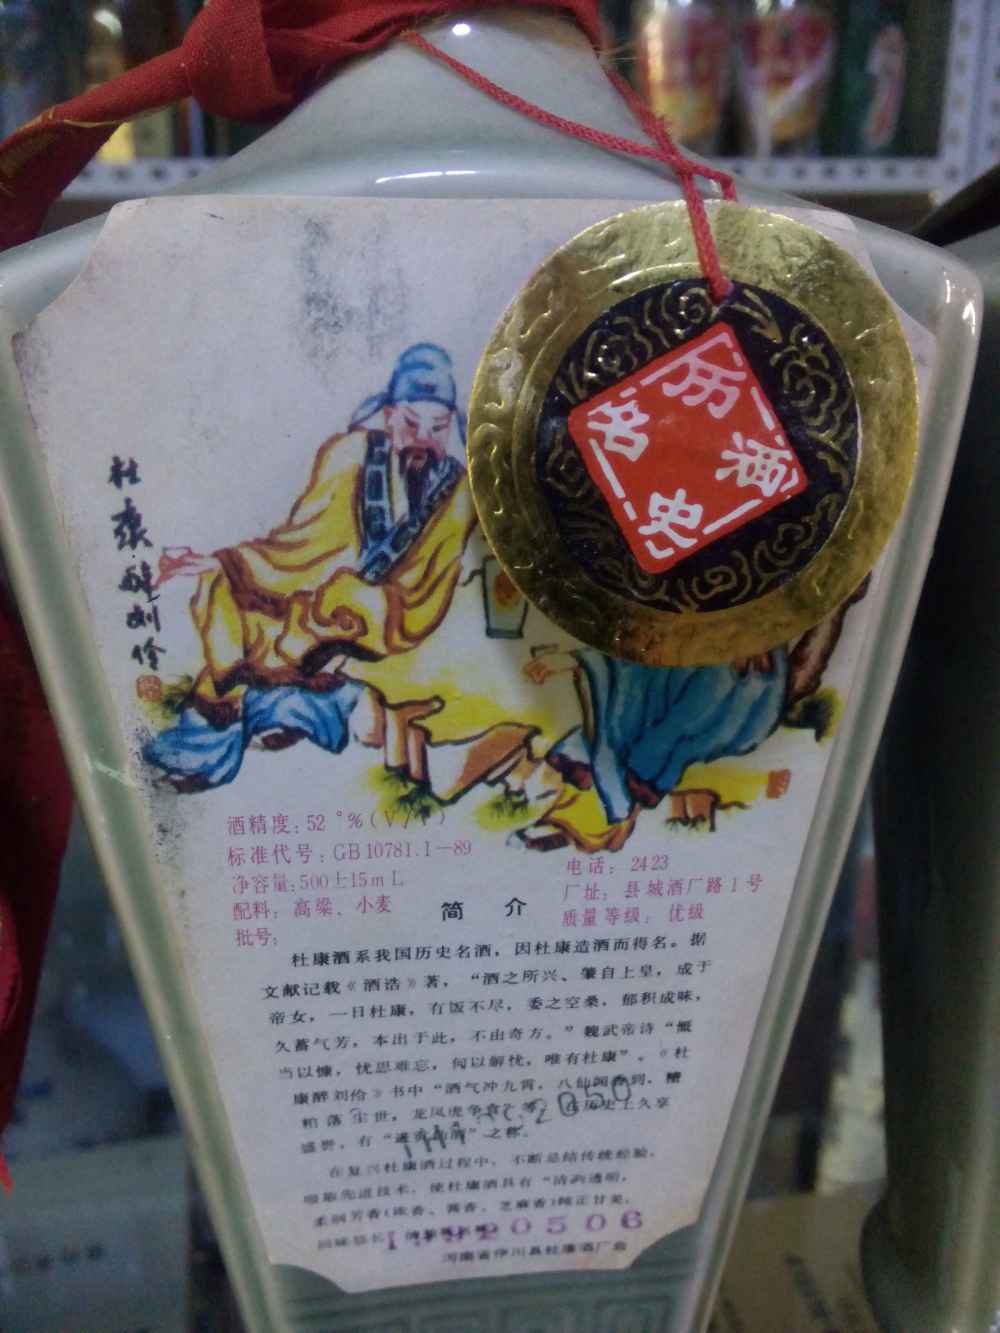 历史
名酒
杜康醉刘伶
酒精度:52°%(V/V)
标准代号:GB10781.1—89
净容量:500±15mL
配料:高梁、小麦
批号:
电话:2423
厂址:县城酒厂路1号
质量等级:优级
简 介
杜康酒系我国历史名酒，因杜康造酒而得名。据
文献记载《酒浩》著，“酒之所兴、肇自上皇，成于
帝女，一日杜康，有饭不尽，委之空桑，郁积成味，
久蓄气芳，本出于此，不由奇方。”魏武帝诗“慨
当以慷，忧思难忘，何以解忧，唯有杜康”。《杜
康醉刘伶》书中“酒气冲九宵，八仙闻香到，糟
粕落尘世，龙凤虎争食”等，在历史上久享
盛誉，有“进贡仙酒”之称。
在复兴杜康酒过程中，不断总结传统经验，
吸取先进技术，使杜康酒具有“清冽透明，
柔润芳香(浓香、酱香、芝麻香)纯正甘美，
回味悠长
19920506
河南省伊川县杜康酒厂